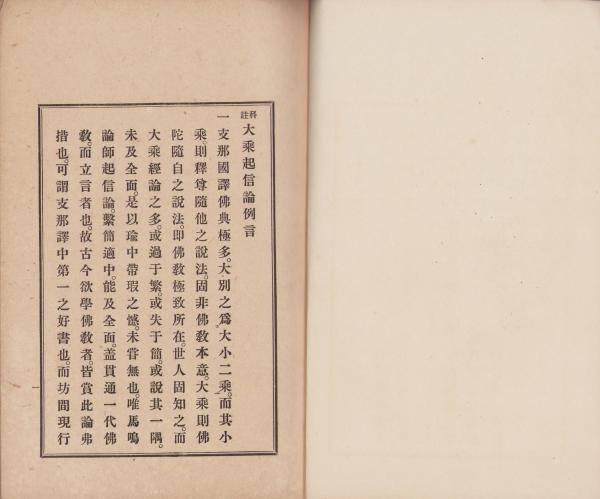 科註大乘起信論例言
一支那國譯佛典極多。大別之爲大小二乘。而其小
乘。則釋尊隨他之說法。固非佛敎本意。大乘則佛
陀隨自之說法。卽佛敎極致所在。世人固知之。而
大乘經論之多。或過于繁。或失于簡。或說其一隅。
未及全面。是以瑜中帶瑕之憾。未甞無也。唯馬鳴
論師起信論。繫簡適中。能及全面。蓋貫通一代佛
敎。而立言者也。故古今欲學佛敎者。皆賞此論弗
措也。可謂支那譯中第一之好書也。而坊間現行